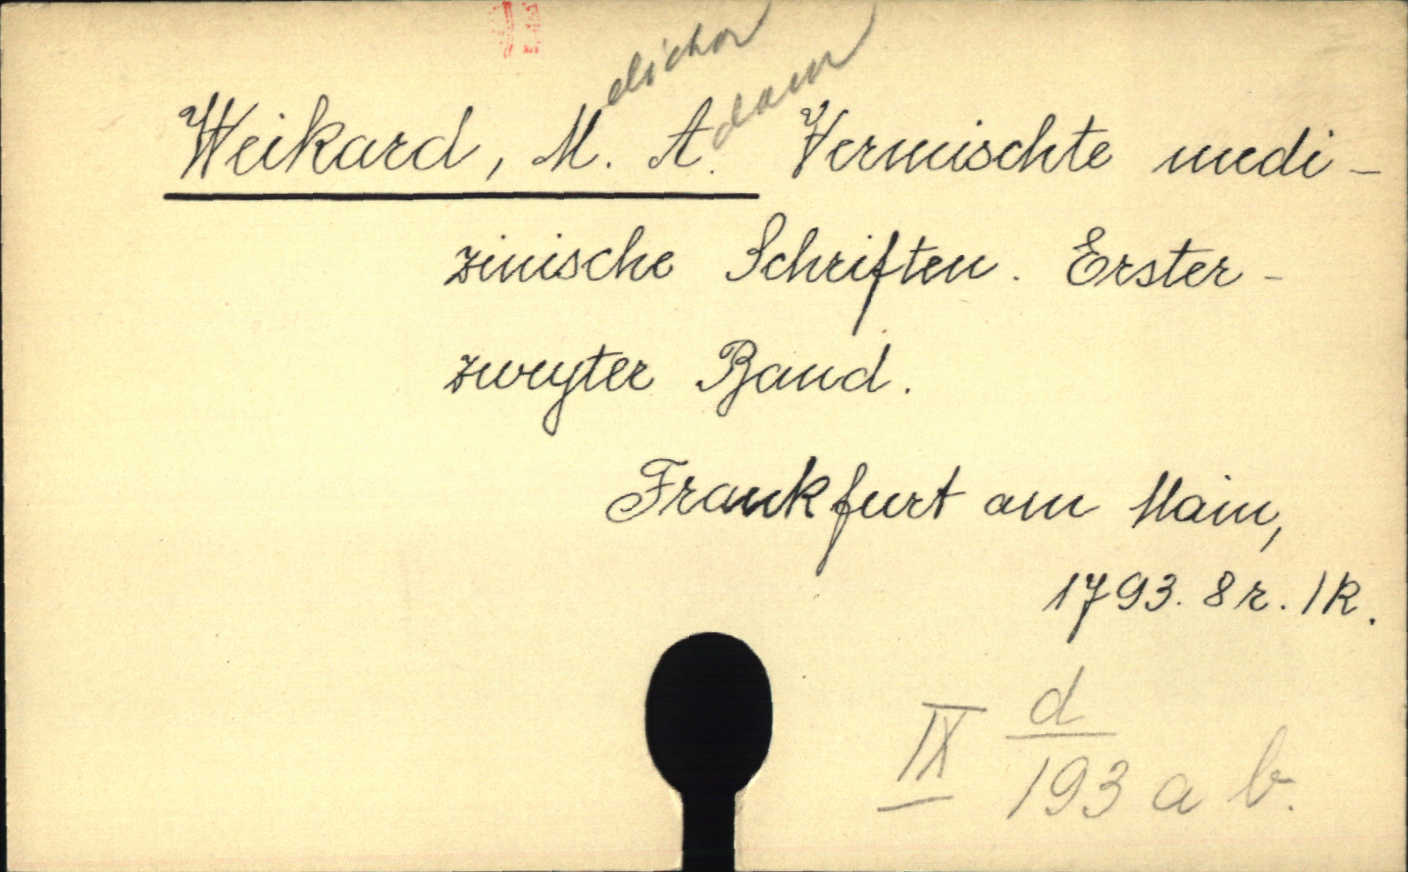 elichor dam
Weikard, M. A. Vermischte medi-
zinische Schriften. Erster-
zweyter Band.
Frankfurt am Main,
1793. 8r. 1R.
IX d
193 a b.